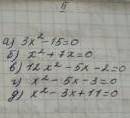 а) 3x² - 15 = 0
б) x² + 7x = 0
в) 12x² - 5x - 2 = 0
г) x² - 5x - 3 = 0
д) x² - 3x + 11 = 0